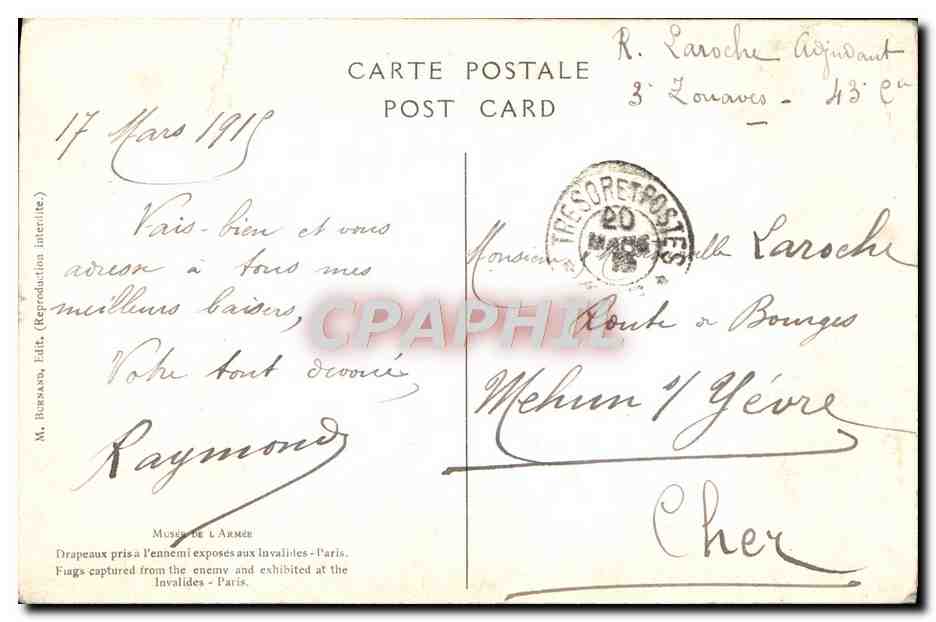 R. Laroche Adjudant
3e Zouaves - 43e Cie
CARTE POSTALE
POST CARD
17 Mars 1915
Vais-bien et vous
adresse à tous mes
meilleurs baisers,
Votre tout dévoué,
Raymond
M. BURNAND, Edit. (Reproduction interdite.)
MUSÉE DE L'ARMÉE
Drapeaux pris à l'ennemi exposés aux Invalides - Paris.
Flags captured from the enemy and exhibited at the
Invalides - Paris.
TRESOR ET POSTES
20
MARS
15
Monsieur Laroche
Route de Bourges
Mehun s/ Yévre
Cher
CPAPHIL